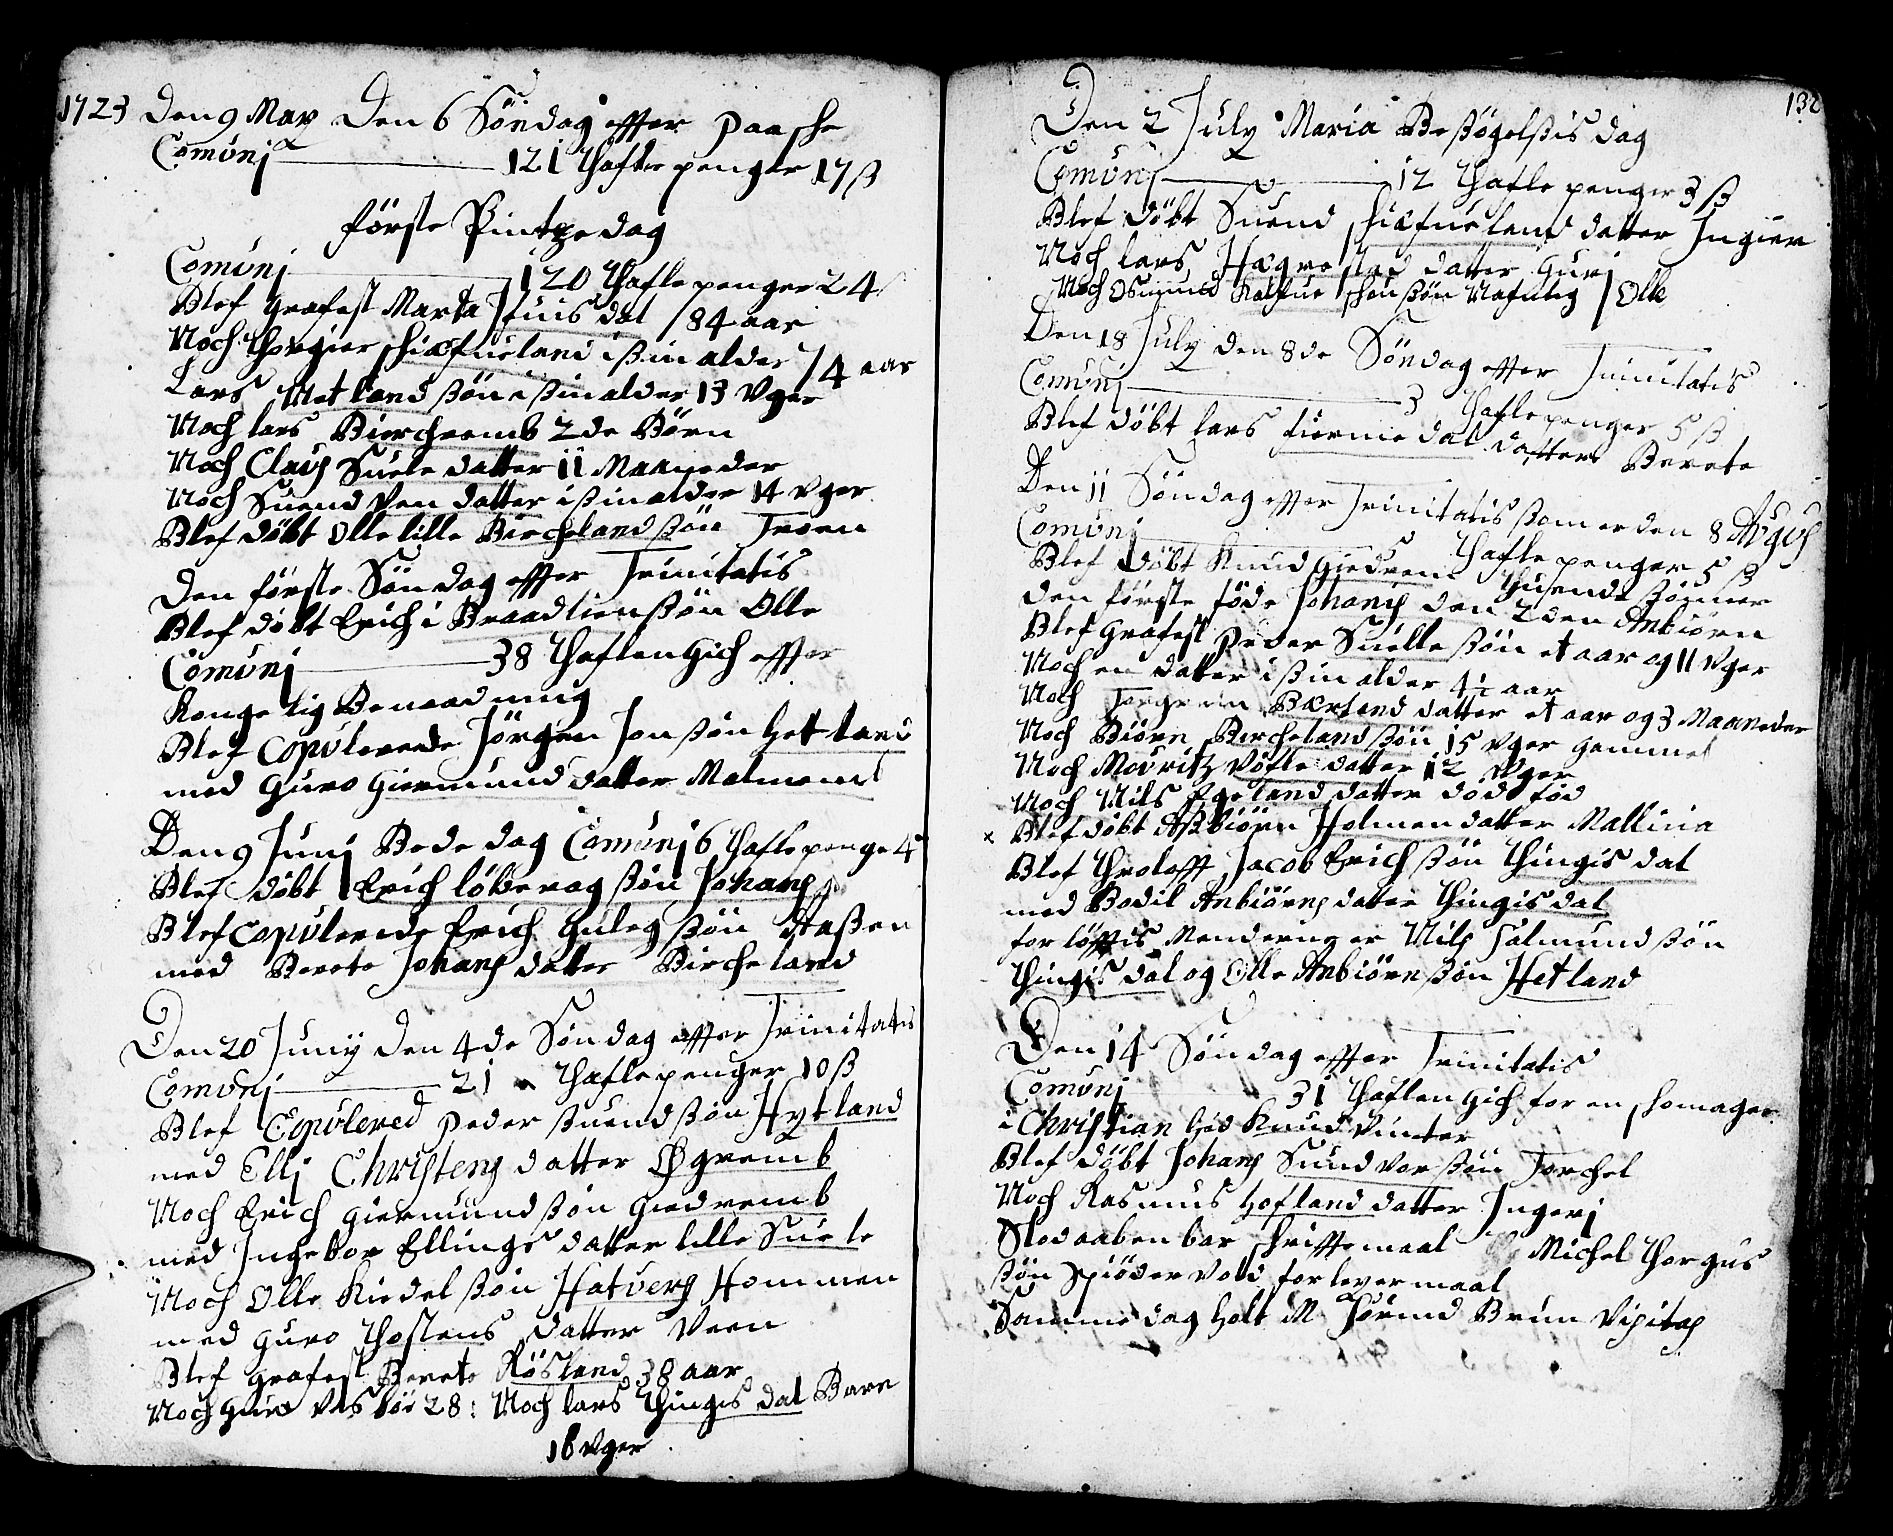 1723 Den 9 May Den 6 Söndag effter Paasche
Comunj 121 Thafle penger 17 ß
förste Pintzedag
Comunj 120 Thafle penger 24
Blef Grafest Marta Stuis dal 84 aar
Noch Thorgier schiæfueland i ßin alder 74 aar
Lars Metland ßön i ßin alder 13 Vger
Noch lars Bierchremb 2de Börn
Noch Clauß Suele datter 11 Maaneder
Noch Suend Ven datter i ßin alder 14 vger
Blef döbt Olle lille Bircheland ßön Troen
Den förste Söndag effter Trinitatis
Blef döbt Erich i Braadlien ßön Olle
Comunj 38 Thaflen Gich effter
Kongelig Benaadning
Blef Copulerede Jörgen Jon ßön Hetland
med Guro Giermund datter Malmems
Den 9 Junj Bededag Comunj 6 Thafle penge 4
Blef döbt Erich löberag ßön Johanß
Blef Copulerede Erich Guleg ßön Staßen
med Berete Johanß datter Bircheland
Den 20 Junij Den 4de Söndag effter Trinitatis
Comunj 21 Thafle penger 10 ß
Blef Copulered Peder ßuend ßön Hytland
med Ellj Christenß datter Øgremb
Noch Erich Giermund ßön Giedremb
med Ingebor Ellings datter lille Suele
Noch Olle Kiedel ßön Hatverß Hommen
med Guro Thostens datter Veen
Blef Grafest Berete Rösland 38 aar
Noch Guro Vasböe 28: Noch lars Thingis dal Barn
18 vger
132
Den 2 July Maria Besøgelßis dag
Comunj 12 Thafle penger 3 ß
Blef döbt Suend schiæfueland datter Ingier
Noch lars Hægrestad datter Gurj
Noch Osmund Kalfue schou ßön Nafnlig Olle
Den 18 July den 8de Söndag effter Trinitatis
Comunj 3 Thafle penger 5 ß
Blef döbt lars fiermedal datter Berete
Den 11 Söndag effter Trinitatis ßom er den 8 Avgusti
Comunj 5 Thafle penger 5 ß
Blef döbt Knud Giedrem Thuende ßönner
den förste föde Johanß den 2den Anbiörn
Blef Grafest Peder Suelle ßön et aar og 11 Vger
Noch en datter i ßin alder 4½ aar
Noch Torgrim Bærland datter et aar og 3 Maaneder
Noch Biörn Bircheland ßön 15 vger gammel
Noch Mouritz Vofle datter 12 Vger
Noch Nils Egeland datter död föd
x Blef döbt Aßbiörn Holmen datter Mallina
Blef Throloff Jacob Erich ßön Thingis dal
med Bodil Anbiörnß datter Thingis dal
for löfftis Menderne er Nilß Salmund ßön
Thingis dal og Olle Anbiörn ßön Hetland
Den 14 Söndag effter Trinitatis
Comunj 31 Thaflen Gich for en schomager
i Christian hed Knud Vinter
Blef döbt Johanß Sundvor ßön Torchel
Noch Rasmus Hofland datter Ingerj
Stod aabenbar schriftemaal Michel Thorgus
ßön Spiöder Vold for lever maal
Samme dag holt M Brun Visitaß